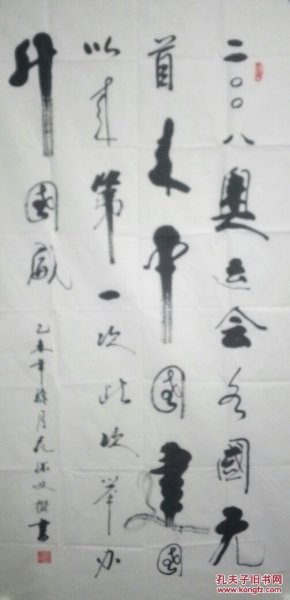 二〇〇八奥运会各國元
首来中國建國
以来第一次此次举办
升國威
乙未年
月
书
孔夫子旧书网
www.kongfz.com